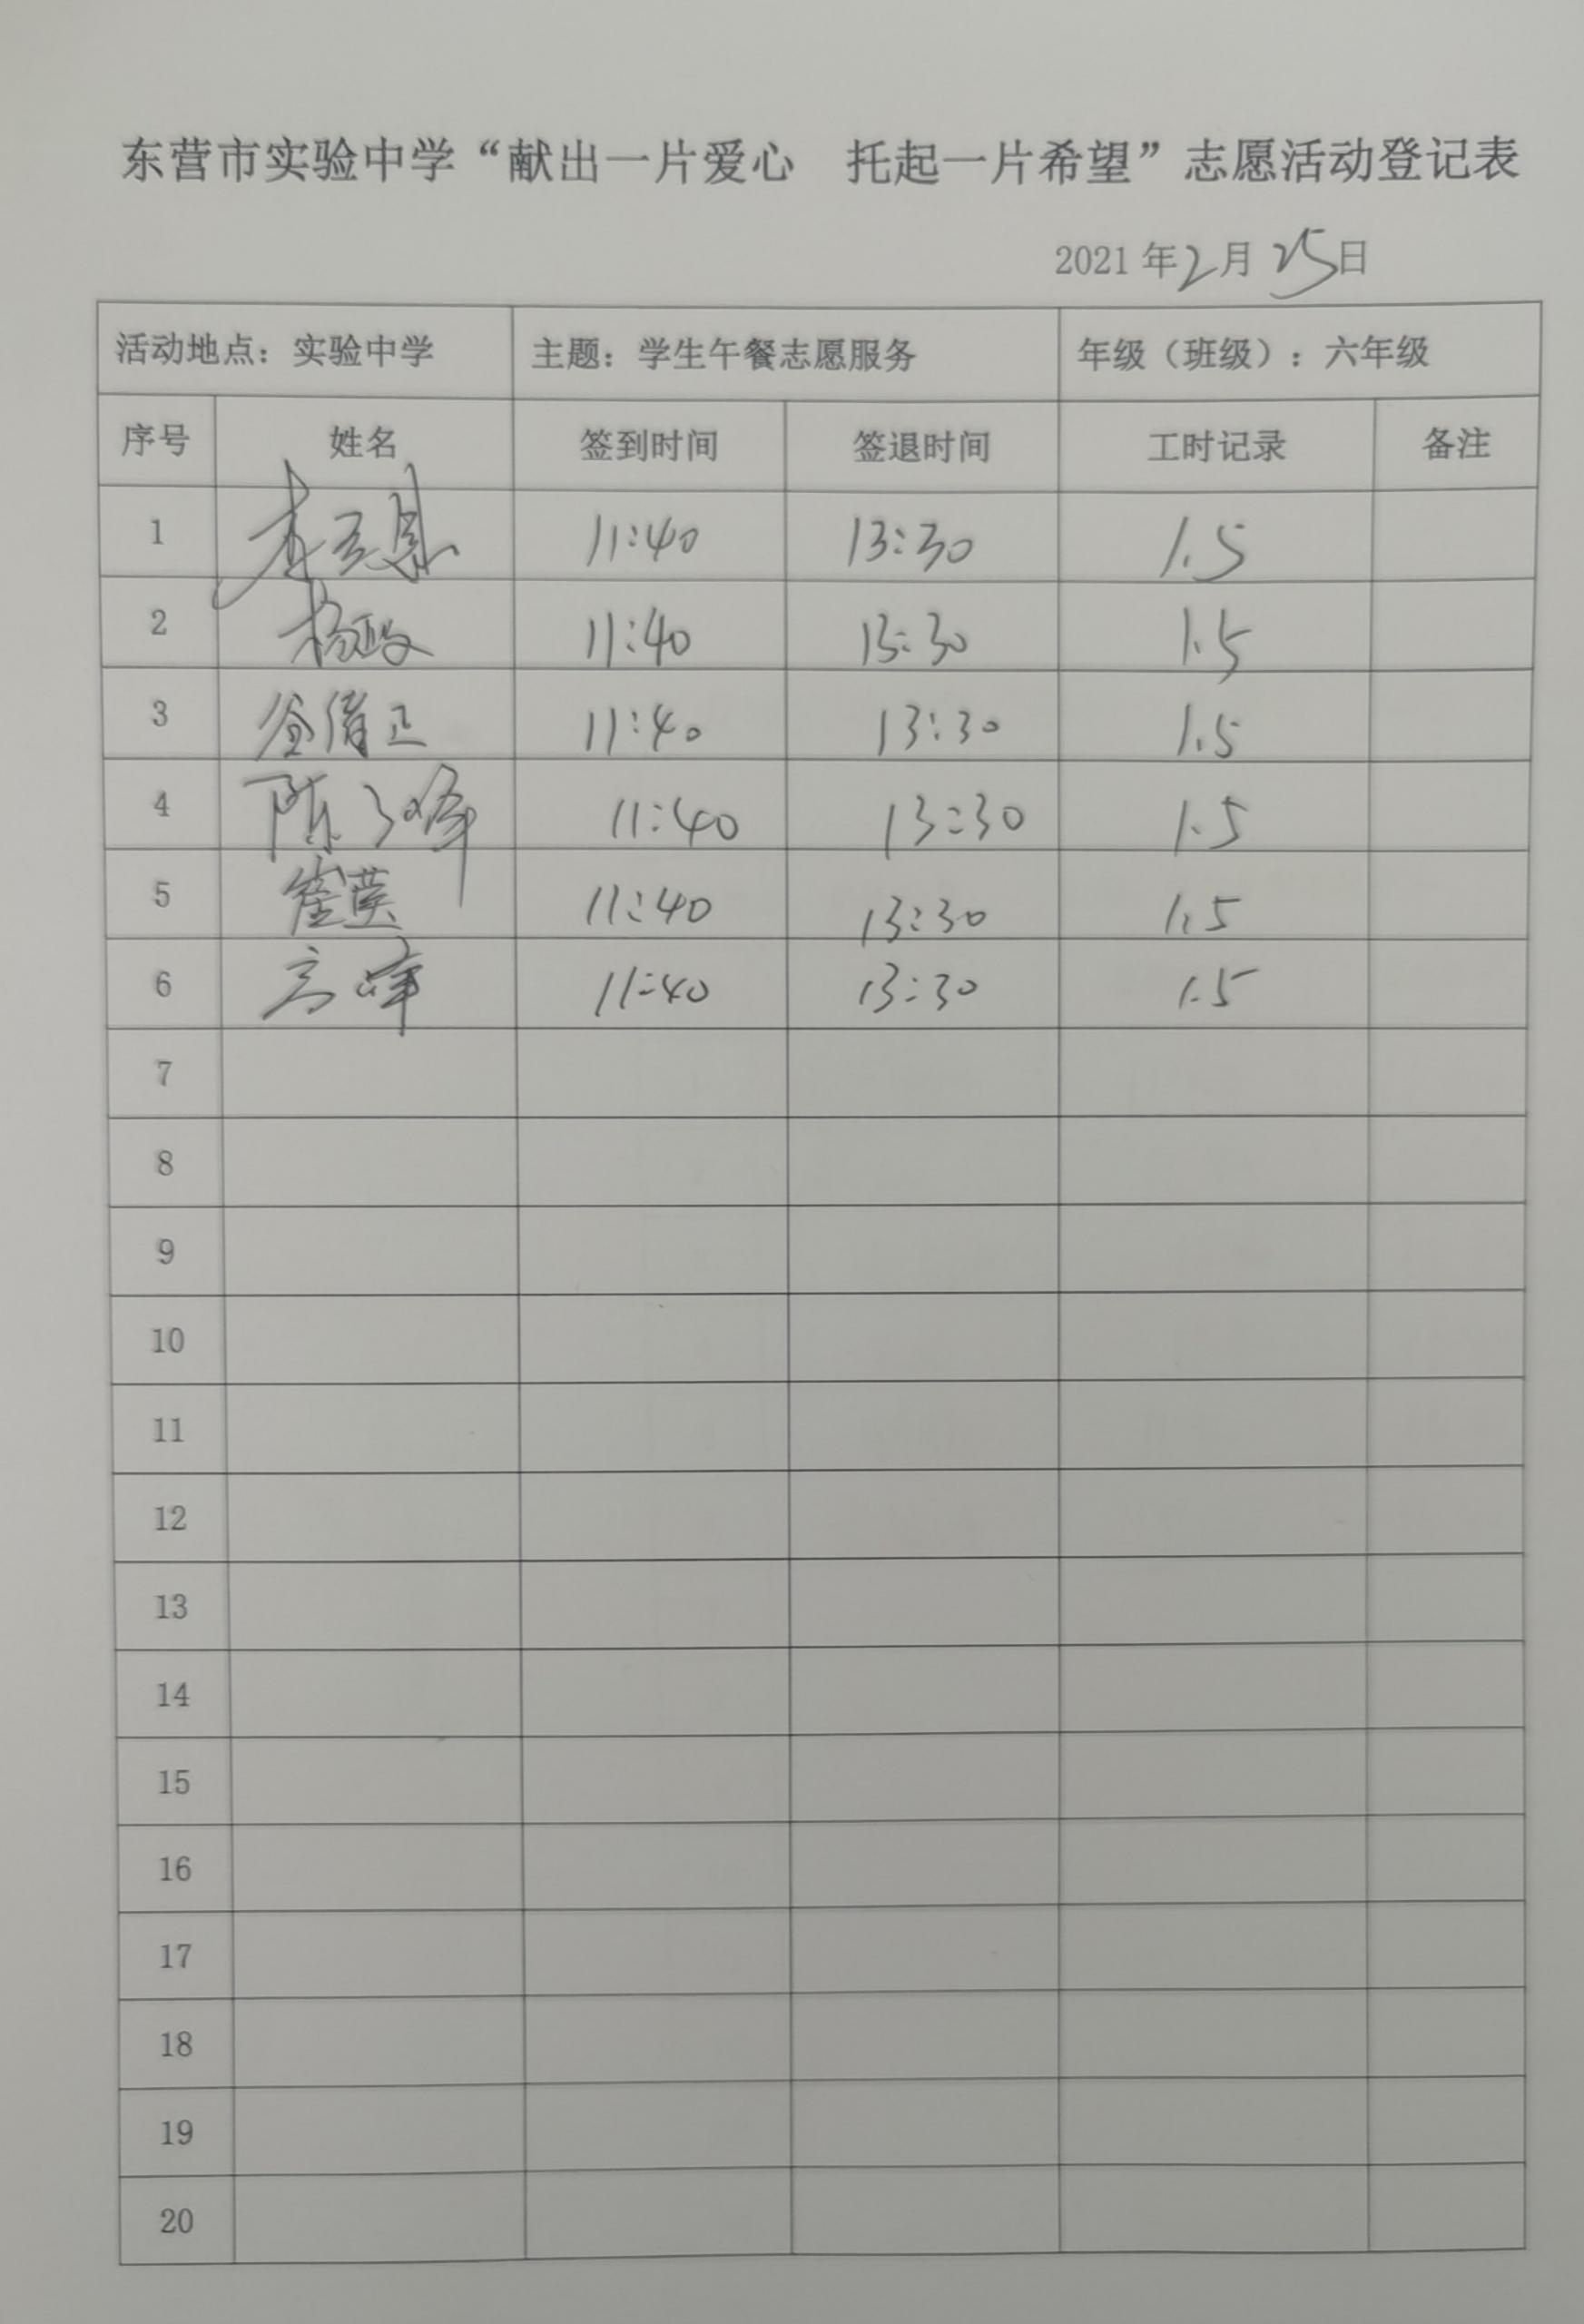 东营市实验中学“献出一片爱心 托起一片希望”志愿活动登记表
2021年2月25日
活动地点：实验中学 主题：学生午餐志愿服务 年级（班级）：六年级
序号 姓名 签到时间 签退时间 工时记录 备注
1 11:40 13:30 1.5
2 11:40 13:30 1.5
3 11:40 13:30 1.5
4 11:40 13:30 1.5
5 11:40 13:30 1.5
6 高峰 11:40 13:30 1.5
7
8
9
10
11
12
13
14
15
16
17
18
19
20